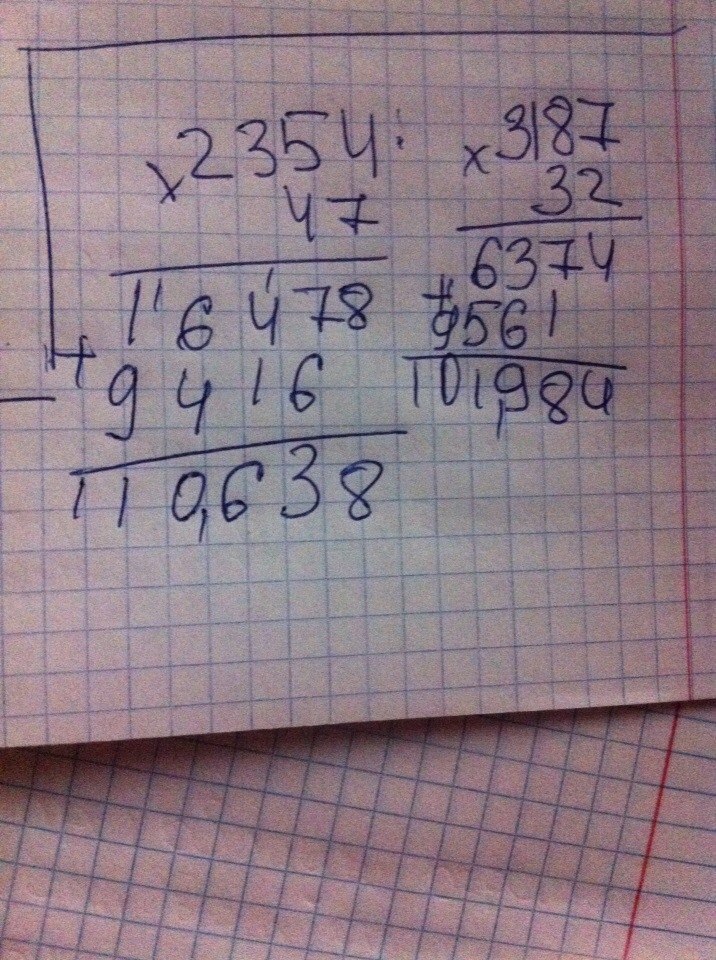 × 2354
47
16478
+ 9416
110,638
× 3187
32
6374
+ 9561
101,984